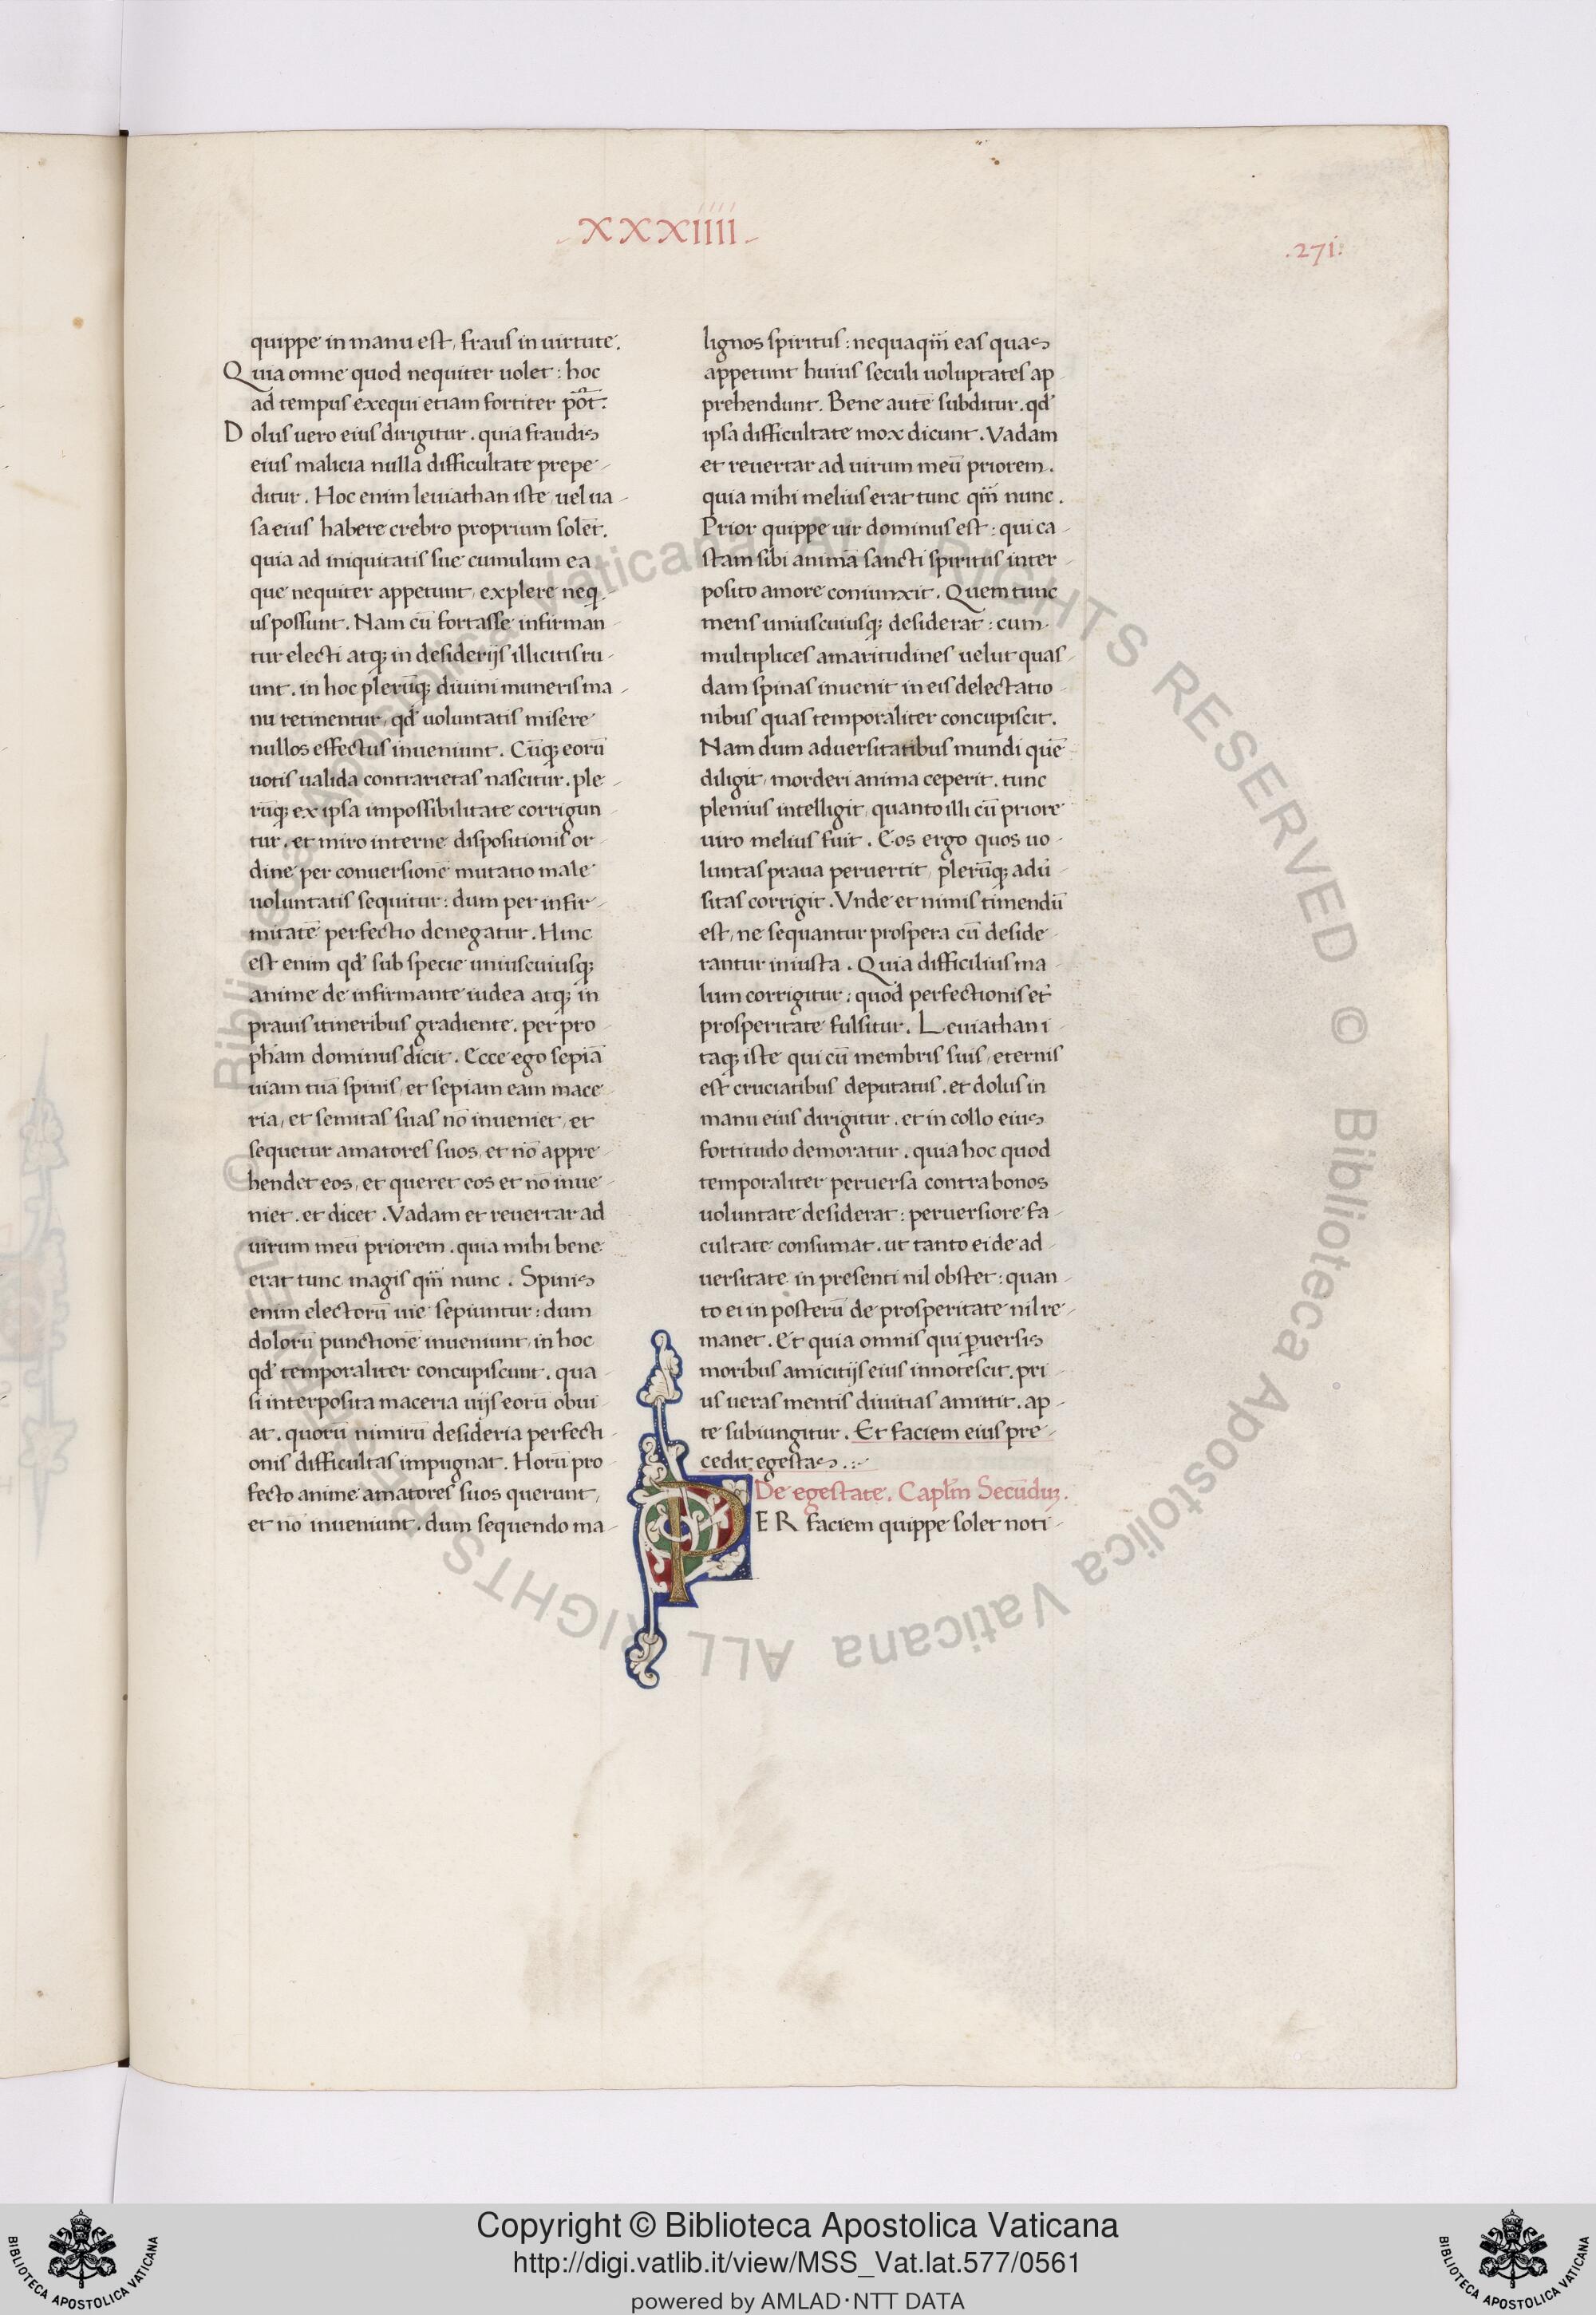 XXXIIII
.271.
quippe in manu est, fraus in uirtute.
Quia omne quod nequiter uolet: hoc
ad tempus exequi etiam fortiter põt.
Dolus uero eius dirigitur. quia fraudis
eius malicia nulla difficultate prepe-
ditur. Hoc enim leuiathan iste, uel ua-
sa eius habere crebro proprium solẽt.
quia ad iniquitatis sue cumulum ea
que nequiter appetunt, explere neq-
us possunt. Nam cũ fortasse infirman-
tur electi atq; in desiderijs illicitis ru-
unt. in hoc plerũq; diuini muneris ma-
nu retinentur, qđ uoluntatis misere
nullos effectus inueniunt. Cũq; eorũ
uotis ualida contrarietas nascitur. ple-
rũq; ex ipsa impossibilitate corrigun-
tur. et miro interne dispositionis or-
dine per conuersionẽ mutatio male
uoluntatis sequitur: dum per infir-
mitatẽ perfectio denegatur. Hinc
est enim qđ sub specie uniuscuiusq;
anime de infirmante iudea atq; in
prauis itineribus gradiente. per pro-
pham dominus dicit. Ecce ego sepiã
uiam tuã spinis, et sepiam eam mace-
ria, et semitas suas nõ inueniet, et
sequetur amatores suos, et nõ appre-
hendet eos, et queret eos et nõ inue-
niet. et dicet. Vadam et reuertar ad
uirum meũ priorem. quia mihi bene
erat tunc magis qm̃ nunc. Spinis
enim electorũ uie sepiuntur: dum
dolorũ punctionẽ inueniunt, in hoc
qđ temporaliter concupiscunt. qua-
si interposita maceria uijs eorũ obui-
at. quorũ nimirũ desideria perfecti-
onis difficultas impugnat. Horũ pro-
fecto anime amatores suos querunt,
et nõ inueniunt. dum sequendo ma-
lignos spiritus: nequaqm̃ eas quas
appetunt huius seculi uoluptates ap-
prehendunt. Bene autẽ subditur. qđ
ipsa difficultate mox dicunt. Vadam
et reuertar ad uirum meũ priorem.
quia mihi melius erat tunc qm̃ nunc.
Prior quippe uir dominus est: qui ca-
stam sibi animã sancti spiritus inter-
posito amore coniunxit. Quem tunc
mens uniuscuiusq; desiderat: cum
multiplices amaritudines uelut quas-
dam spinas inuenit in eis delectatio-
nibus quas temporaliter concupiscit.
Nam dum aduersitatibus mundi quẽ
diligit, morderi anima ceperit. tunc
plenius intelligit, quanto illi cũ priore
uiro melius fuit. Eos ergo quos uo-
luntas praua peruertit, plerũq; adũ-
sitas corrigit. Vnde et nimis timendũ
est, ne sequantur prospera cũ deside-
rantur iniusta. Quia difficilius ma-
lum corrigitur: quod perfectionis et
prosperitate fulsitur. Leuiathan i-
taq; iste qui cũ membris suis, eternis
est cruciatibus deputatus. et dolus in
manu eius dirigitur. et in collo eius
fortitudo demoratur. quia hoc quod
temporaliter peruersa contra bonos
uoluntate desiderat: peruersiore fa-
cultate consumat. ut tanto ei de ad-
uersitate in presenti nil obstet: quan-
to ei in posterũ de prosperitate nil re-
manet. Et quia omnis qui puersis
moribus amicitijs eius innotescit. pri-
us ueras mentis diuitias amittit. ap-
te subiungitur. Et faciem eius pre-
cedit egestas.
De egestate. Caplm̃ Secũduz.
PER faciem quippe solet noti-
© Biblioteca Apostolica Vaticana ALL RIGHTS RESERVED © Biblioteca Apostolica Vaticana ALL RIGHTS RESERVED
Copyright © Biblioteca Apostolica Vaticana
http://digi.vatlib.it/view/MSS_Vat.lat.577/0561
powered by AMLAD·NTT DATA
BIBLIOTECA APOSTOLICA VATICANA
BIBLIOTECA APOSTOLICA VATICANA